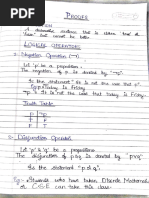 PROOFS
A declarative sentence that is either 'true' or
'false', but cannot be both.
LOGICAL OPERATORS
1- Negation Operator (¬)
Let 'p' be a proposition.
The negation of 'p' is denoted by '¬p'.
Is the statement "It is not the case
Today is Friday.
It is not the case that today is Friday.
Truth Table
P ¬P
T F
F T
2- Disjunction Operator
Let 'p' & 'q' be a propositions.
The disjunction of p & q is denoted by
Is the statement "p or q".
Eg:- Students who have taken Discrete Mathematics
or C.S.E can take this class.